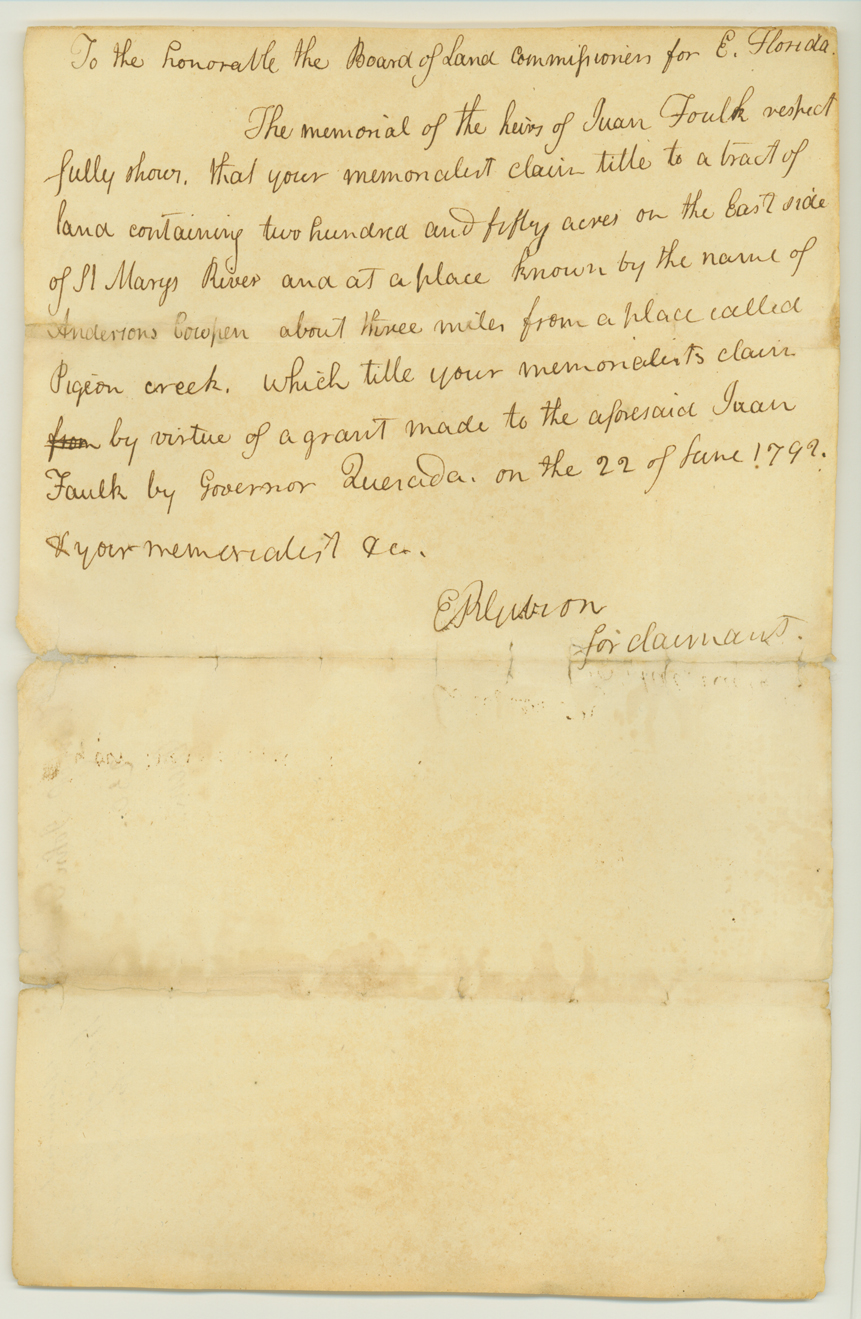 To the honorable the Board of Land Commissioners for E. Florida.
The memorial of the heirs of Juan Foulk respect
fully shows. that your memorialist claim title to a tract of
land containing two hundred and fifty acres on the East side
of St Marys River and at a place known by the name of
Andersons Cowpen about three miles from a place called
Pigeon creek. which title your memorialists claim
from by virtue of a grant made to the aforesaid Juan
Faulk by Governor Quesada. on the 22 of June 1792.
& your memorialist &c.
E R Gibson
for claimant.